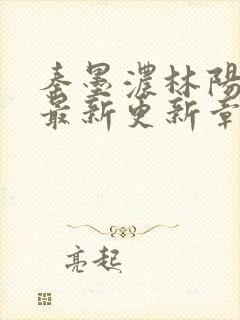 秦墨濃林陽
最新更新章
亮起